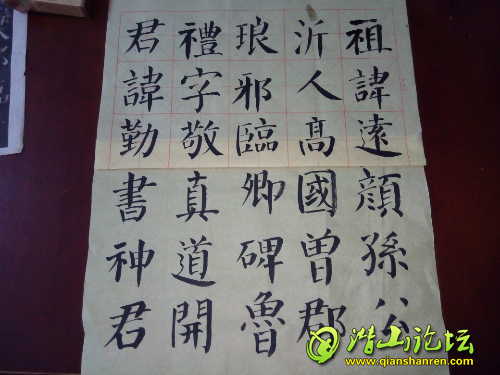 君諱勤書神君
禮字敬真道開
琅邪臨卿碑魯
沂人高國曾郡
祖諱遠顏孫公
潜山论坛
www.qianshanren.com